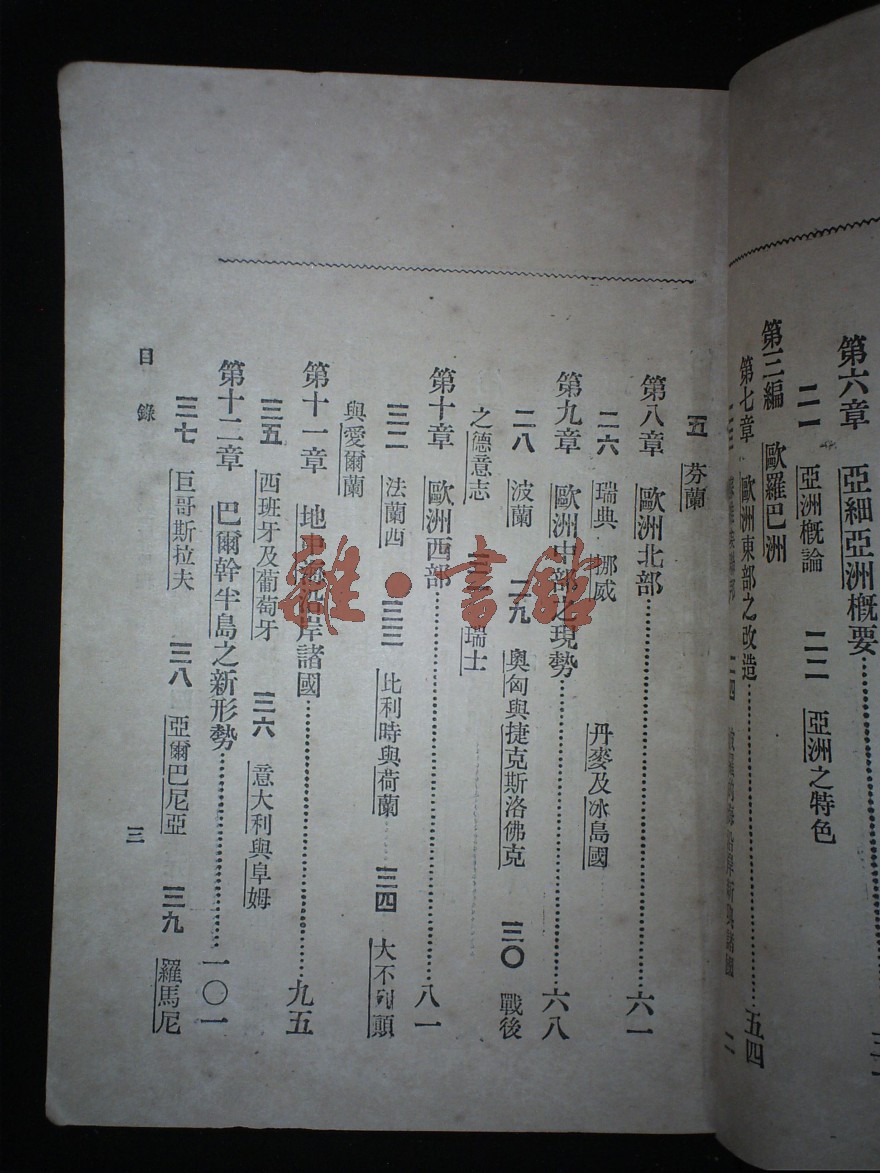 第六章　亞細亞洲概要……
二一　亞洲概論　二二　亞洲之特色
第三編　歐羅巴洲
第七章　歐洲東部之改造……五四
二四
五　芬蘭
第八章　歐洲北部……六一
二六　瑞典　挪威　丹麥及冰島國
第九章　歐洲中部之現勢……六八
二八　波蘭　二九　奧匈與捷克斯洛佛克　三〇　戰後
之德意志　三一　瑞士
第十章　歐洲西部……八一
三二　法蘭西　三三　比利時與荷蘭　三四　大不列顛
與愛爾蘭
第十一章　地中海沿岸諸國……九五
三五　西班牙及葡萄牙　三六　意大利與阜姆
第十二章　巴爾幹半島之新形勢……一〇一
三七　巨哥斯拉夫　三八　亞爾巴尼亞　三九　羅馬尼
目錄　三
雜·書館